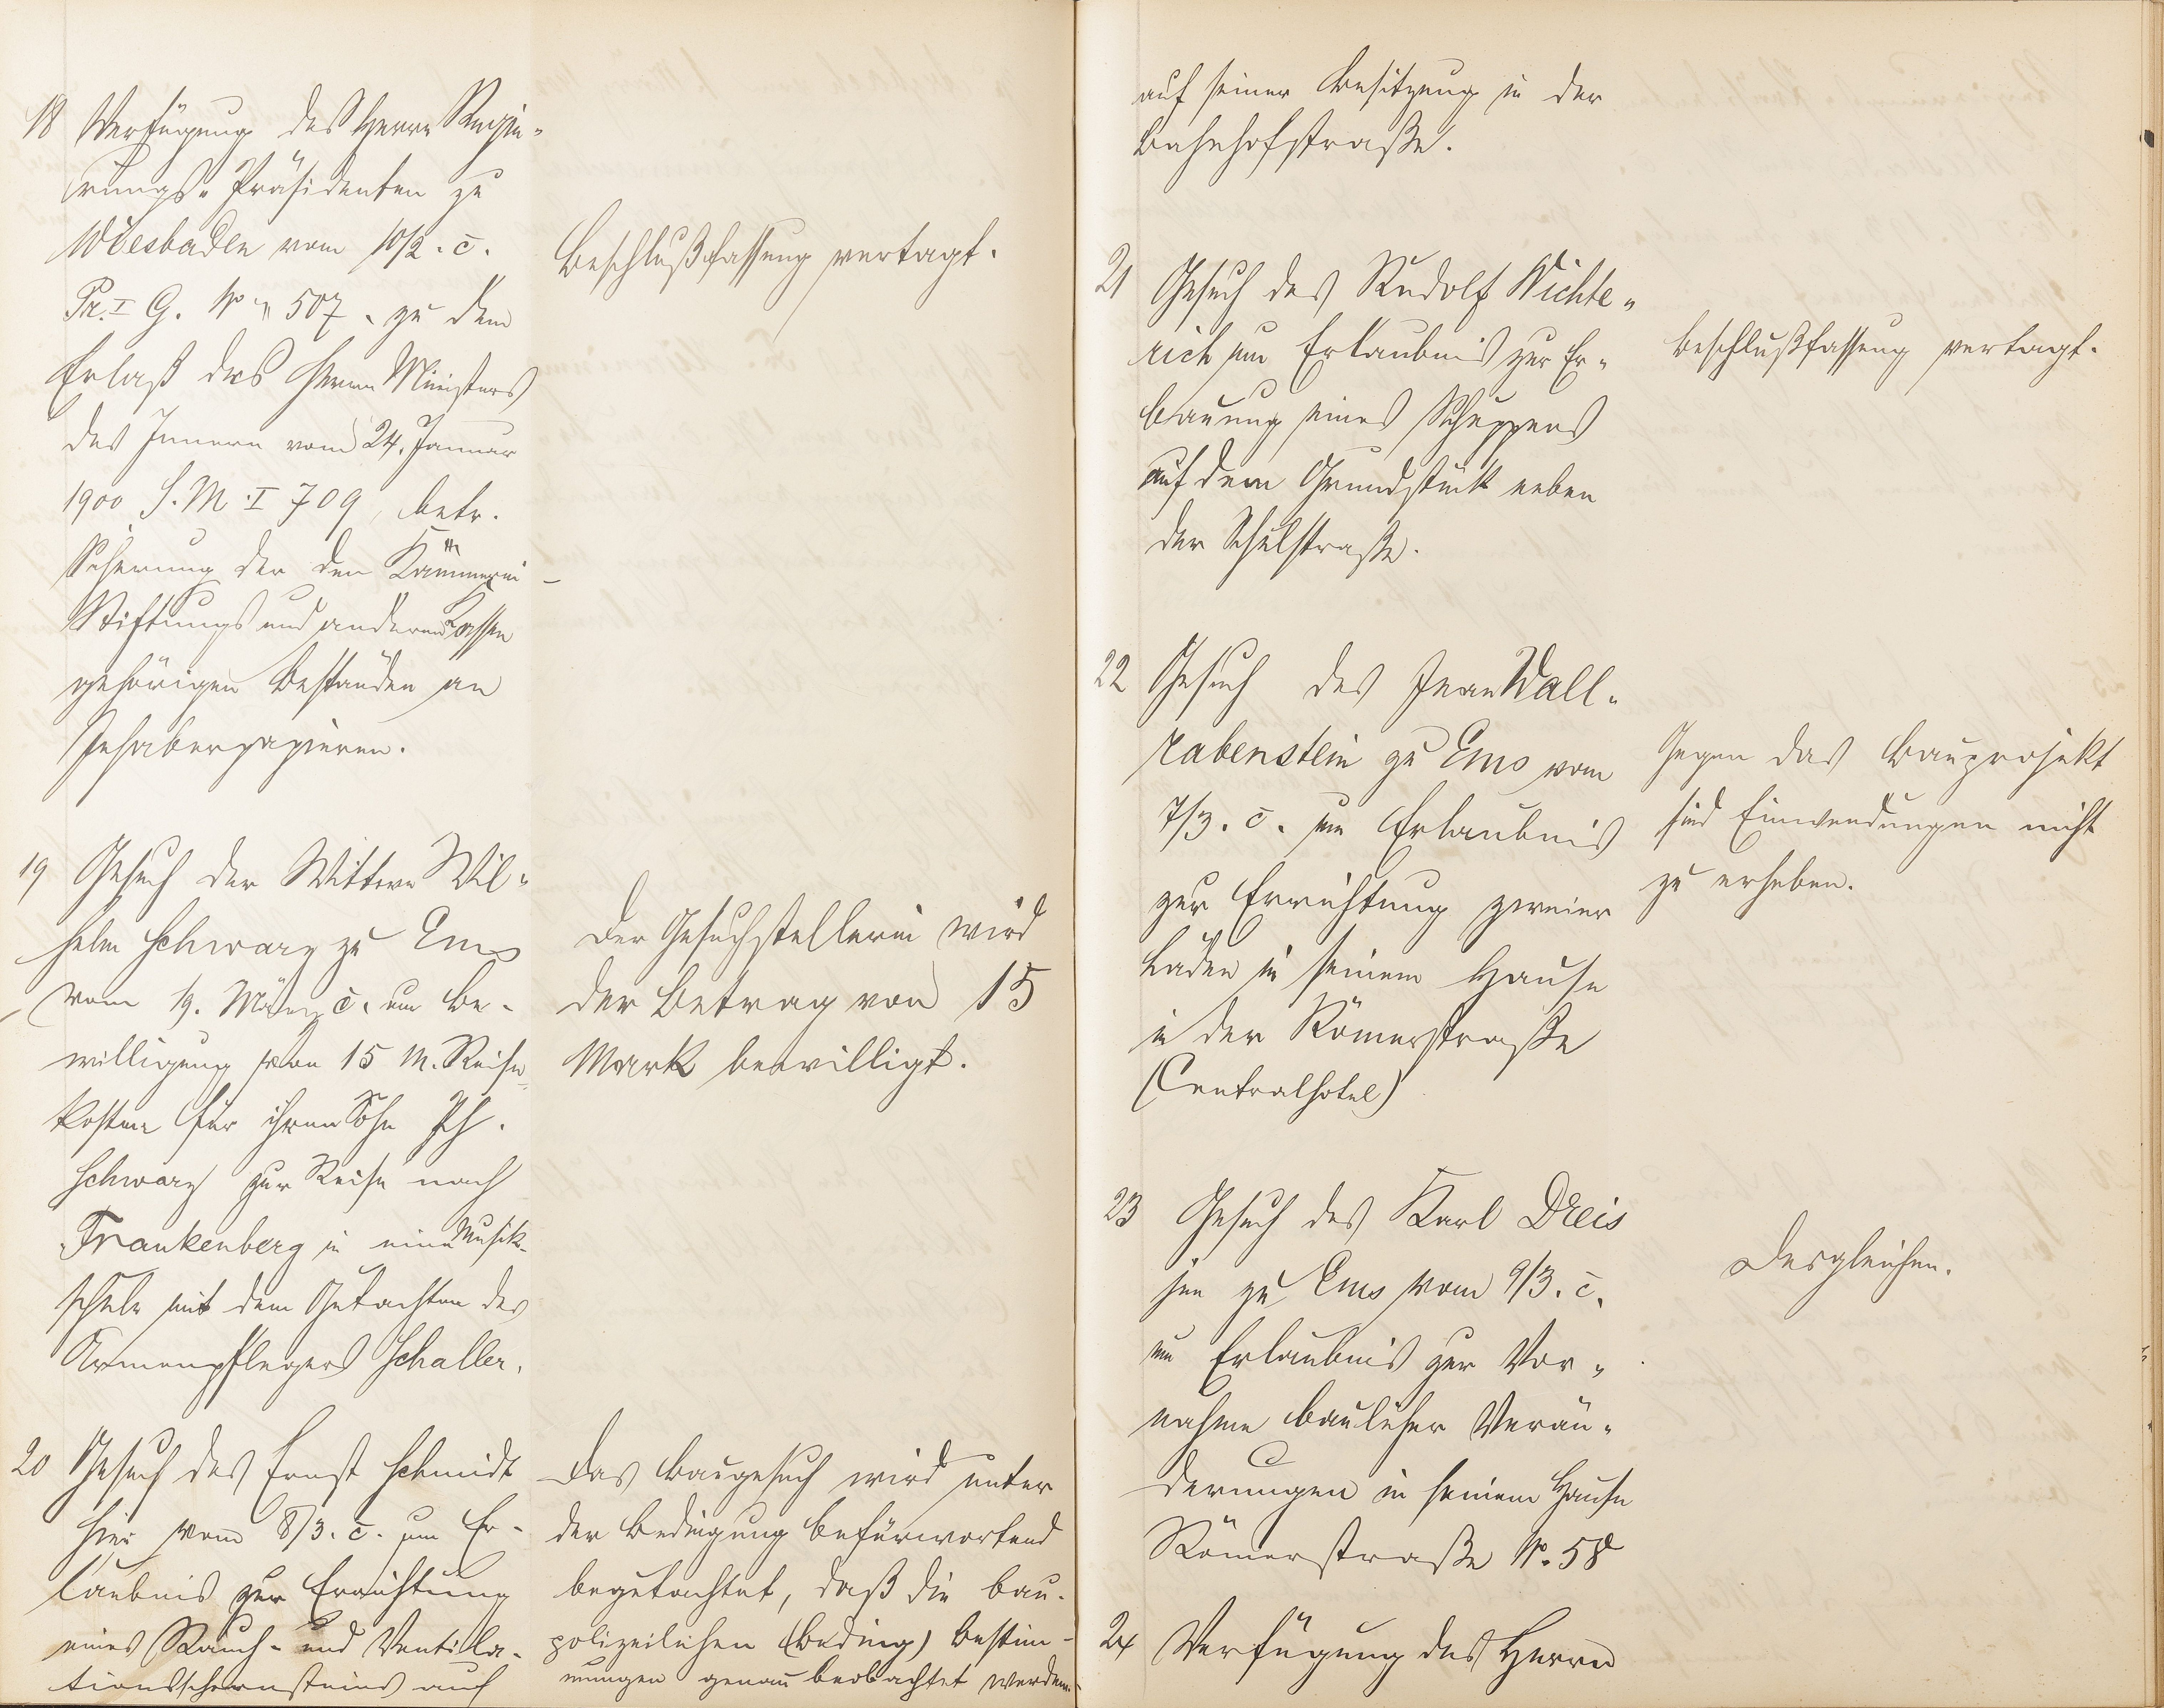 18 Verfügung des Herrn Regie-
rungs-Präsidenten zu
Wiesbaden vom 10/2. c.
Pr. I G. No 507. zu dem
Erlaß des Herrn Ministers
des Innern vom 24. Januar
1900 S. M. I 709, betr.
Sicherung der den Kämmerei-
Stiftungs und anderen Kassen
gehörigen Beständen an
Inhaberpapieren.
Beschlußfassung vertagt.
19 Gesuch der Wittwe Wil-
helm Schwarz zu Ems
vom 19. März c. um Be-
willigung von 15 M. Reise
kosten für ihren Sohn Ph.
Schwarz zur Reise nach
Frankenberg in eine Musik-
schule mit dem Gutachten des
Armenpflegers Schaller.
Der Gesuchstellerin wird
der Betrag von 15
Mark bewilligt.
20 Gesuch des Ernst Schmidt
hier vom 8/3. c. um Er-
laubnis zur Errichtung
eines Rauch- und Ventila-
tionsschornsteins auf
Das Baugesuch wird unter
der Bedingung befürwortend
begutachtet, daß die bau-
polizeilichen (Beding) Bestim-
mungen genau beobachtet werden.
auf seiner Besitzung in der
Bahnhofstraße.
21 Gesuch des Rudolf Wichte-
rich um Erlaubnis zur Er-
bauung eines Schuppens
auf dem Grundstück neben
der Schulstraße.
Beschlußfassung vertagt.
22 Gesuch des Jean Wall-
rabenstein zu Ems vom
7/3. c. um Erlaubnis
zur Errichtung zweier
Läden in seinem Hause
in der Römerstraße
(Centralhotel)
Gegen das Bauprojekt
sind Einwendungen nicht
zu erheben.
23 Gesuch des Karl Dreis
zu Ems vom 9/3. c.
um Erlaubnis zur Vor-
nahme baulicher Verän-
derungen in seinem Hause
Römerstraße No. 58
Desgleichen.
24 Verfügung des Herrn